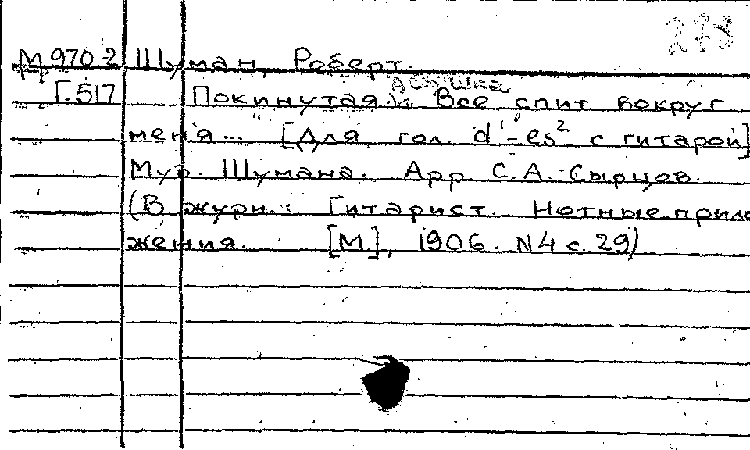 М 970-2 Шуман, Роберт.
Г.517 Покинутая. Все спит вокруг
меня... [Для гол. d¹-es² с гитарой]
Муз. Шумана. Арр. С.А. Сырцов
(В журн.: Гитарист. Нотные прило
жения. [М], 1906. N4 с. 29)